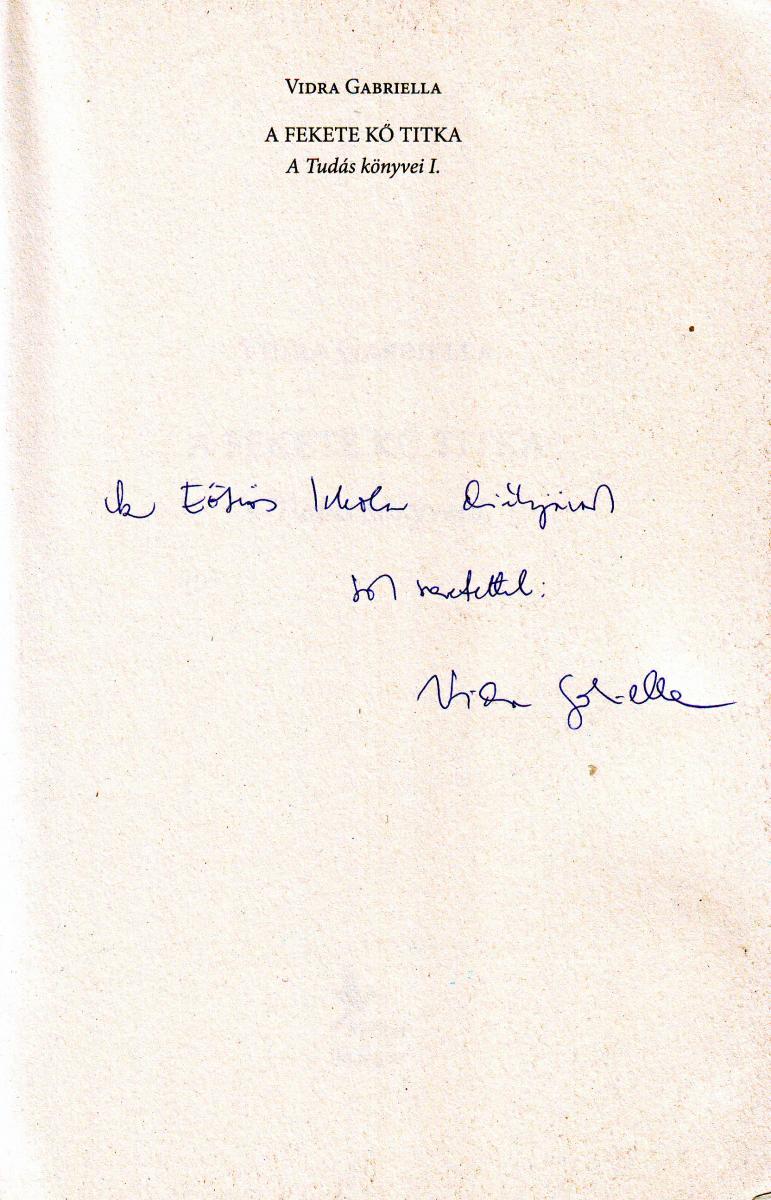 VIDRA GABRIELLA
A FEKETE KŐ TITKA
A Tudás könyvei I.
Az Eötvös Iskola diákjainak
sok szeretettel:
Vidra Gabriella